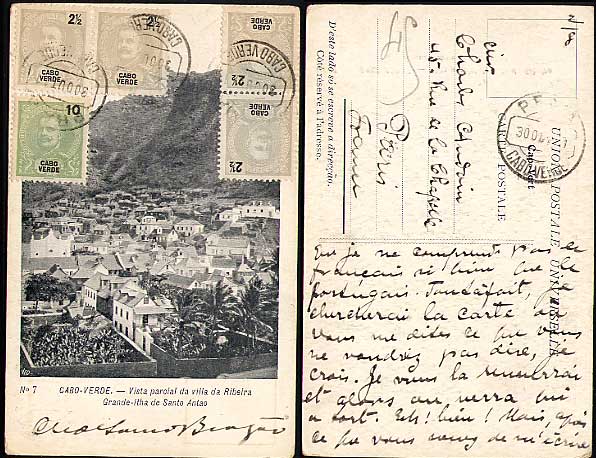 2½
CABO
VERDE
2½
CABO
VERDE
CABO
VERDE
2½
CABO
VERDE
2½
10
CABO
VERDE
CABO VERDE
30 OUT
Nº 7
CABO-VERDE. — Vista parcial da villa da Ribeira
Grande-ilha de Santo Antao
D'este lado só se escreve a direcção.
Côté réservé à l'adresse.
Paris
France
45, Rue de la Chapelle
CARTE POSTALE
UNION POSTALE UNIVERSELLE
CABO VERDE
que je ne comprends pas le
français si bien que le
portugais. Toutefois, je
chercherai la carte où
vous me dites ce que vous
ne voudrez pas dire, je
crois. Je vous la renverrai
et alors on verra qui
a tort. Eh! bien! Mais, après
ce que vous venez de m'écrire